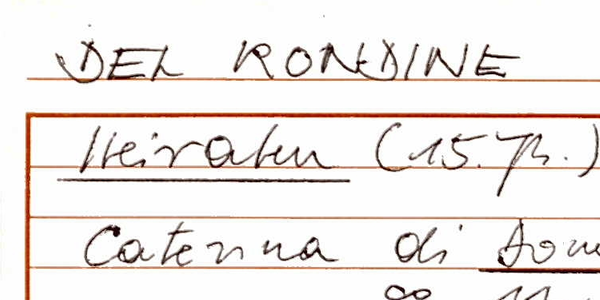 DEL RONDINE
Heiraten (15. Jh.)
Caterina di